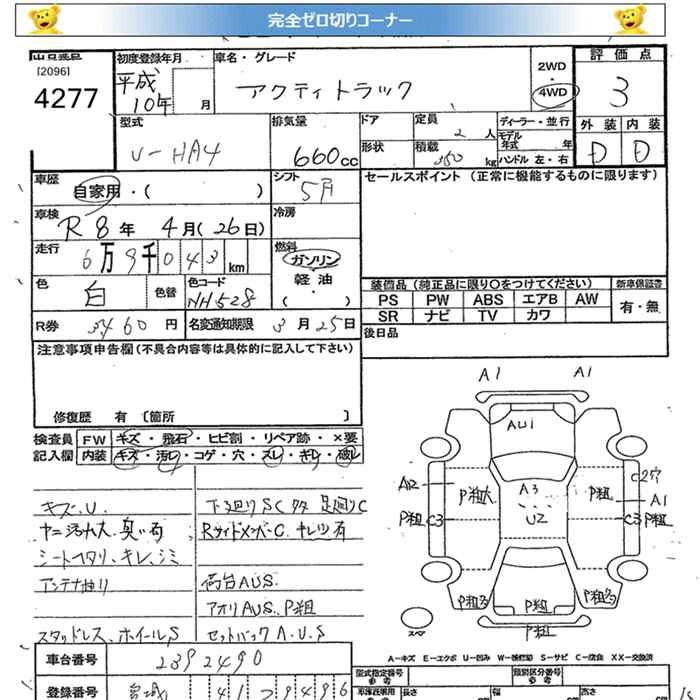 完全ゼロ切りコーナー
[2096]
4277
初度登録年月
平成
10年 月
車名・グレード
アクティトラック
2WD
・
4WD
評価点
3
型式
V-HA4
排気量
660cc
ドア
形状
定員 2 人
積載 350 kg
ディーラー・並行
モデル年式 年
ハンドル 左・右
外装 内装
D D
車歴
自家用・( )
シフト
5F
セールスポイント (正常に機能するものに限ります)
車検
R8年 4月(26日)
冷房
走行
6万9千043km
燃料
ガソリン
・
軽油
・
( )
色
白
色替
色コード
NH528
装備品 (純正品に限り○をつけてください)
新車保証書
PS PW ABS エアB AW
SR ナビ TV カワ
有・無
R券 3460円
名変通知期限 3月25日
後日品
注意事項申告欄(不具合内容等は具体的に記入して下さい)
修復歴 有 〔箇所 〕
検査員
記入欄
FW キズ・飛石・ヒビ割・リペア跡・×要
内装 キズ・汚レ・コゲ・穴・スレ・キレ・破レ
キズ.U.
ヤニ汚れ大 臭い有
シートヘタリ、キレ、シミ
アンテナ曲り
スタッドレス、ホイールS
下廻りSC タタ 足廻りC
RサイドメンバーC. キレツ有
荷台AUS.
アオリAUS、P粗
セットバックA.U.S
A1 A1
AU1
A3
U2
A12
P粗大
P粗
P粗 C3
C2穴
A1
C3 P粗
P粗多 P粗 P粗多
P粗
スペア
A―キズ E―エクボ U―凹み W―補修跡 S―サビ C―腐食 XX―交換済
車台番号
2392490
登録番号
宮城 41 7 9496
型式指定番号
参考
類別区分番号
参考
長さ 幅 高さ